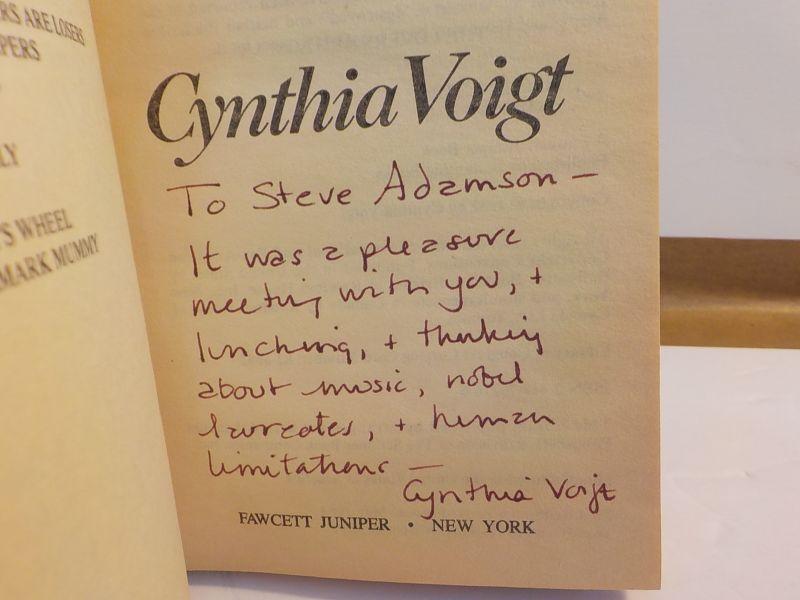 RS ARE LOSERS
PERS
LY
'S WHEEL
MARK MUMMY
Cynthia Voigt
To Steve Adamson —
It was a pleasure
meeting with you, +
lunching, + thinking
about music, nobel
laureates, + human
limitations —
Cynthia Voigt
FAWCETT JUNIPER • NEW YORK